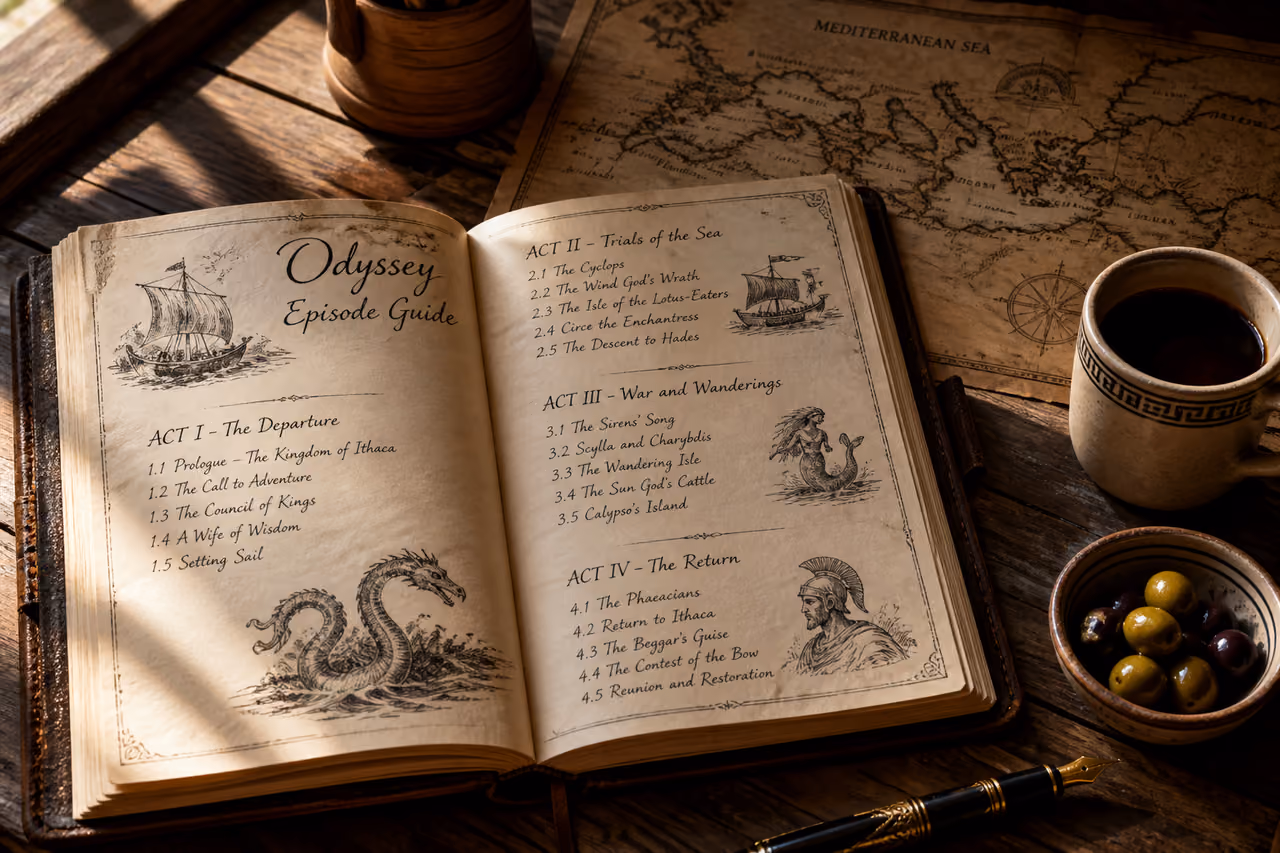 Odyssey
Episode Guide
ACT I – The Departure
1.1 Prologue – The Kingdom of Ithaca
1.2 The Call to Adventure
1.3 The Council of Kings
1.4 A Wife of Wisdom
1.5 Setting Sail
ACT II – Trials of the Sea
2.1 The Cyclops
2.2 The Wind God's Wrath
2.3 The Isle of the Lotus-Eaters
2.4 Circe the Enchantress
2.5 The Descent to Hades
ACT III – War and Wanderings
3.1 The Sirens' Song
3.2 Scylla and Charybdis
3.3 The Wandering Isle
3.4 The Sun God's Cattle
3.5 Calypso's Island
ACT IV – The Return
4.1 The Phaeacians
4.2 Return to Ithaca
4.3 The Beggar's Guise
4.4 The Contest of the Bow
4.5 Reunion and Restoration
MEDITERRANEAN SEA